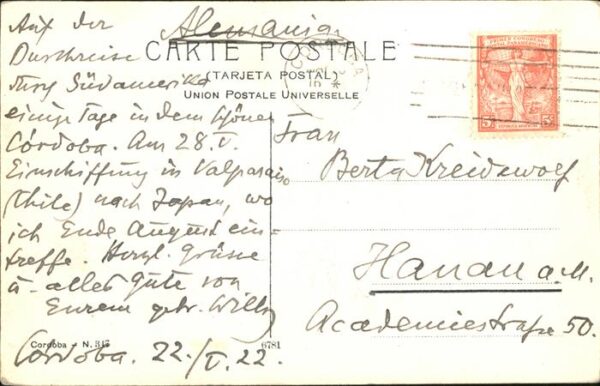 Alemania
CARTE POSTALE
(TARJETA POSTAL)
UNION POSTALE UNIVERSELLE
Auf der
Durchreise
durch Südamerika
einige Tage in dem schönen
Córdoba. Am 28. V.
Einschiffung in Valparaiso
(Chile) nach Japan, wo
ich Ende August ein-
treffe. Herzl. Grüsse
u. alles Gute von
Eurem gebr. Willy
Cordoba - N. 347
6781
Cordoba. 22./V. 22.
PRIMER CONGRESO
5c
5c
Frau
Berta Kreidewolf
Hanau a.M.
Academiestrasse 50.